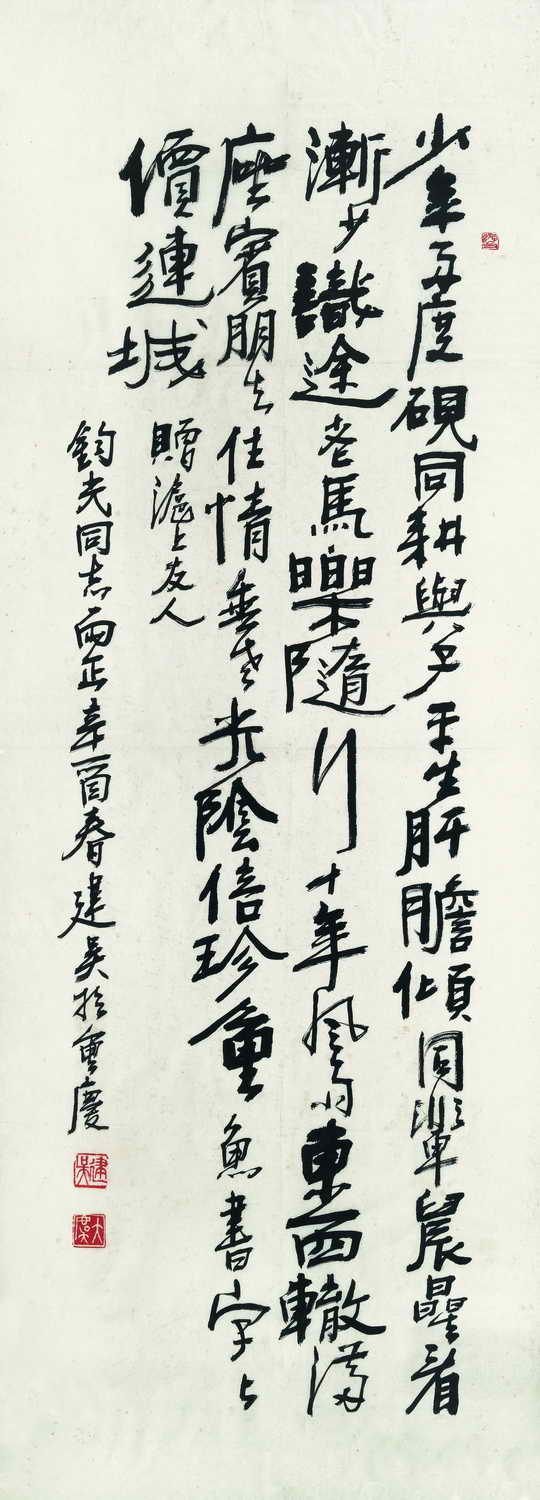 少年度硯同耕與子平生肝膽傾同輩晨曐看
漸少識途老馬樂隨行十年風雨東西轍滿
座賓朋去住情垂老光陰倍珍重魚書字々
價連城
贈滬上友人
鈞同志兩正辛酉春建吳於重慶
建吳